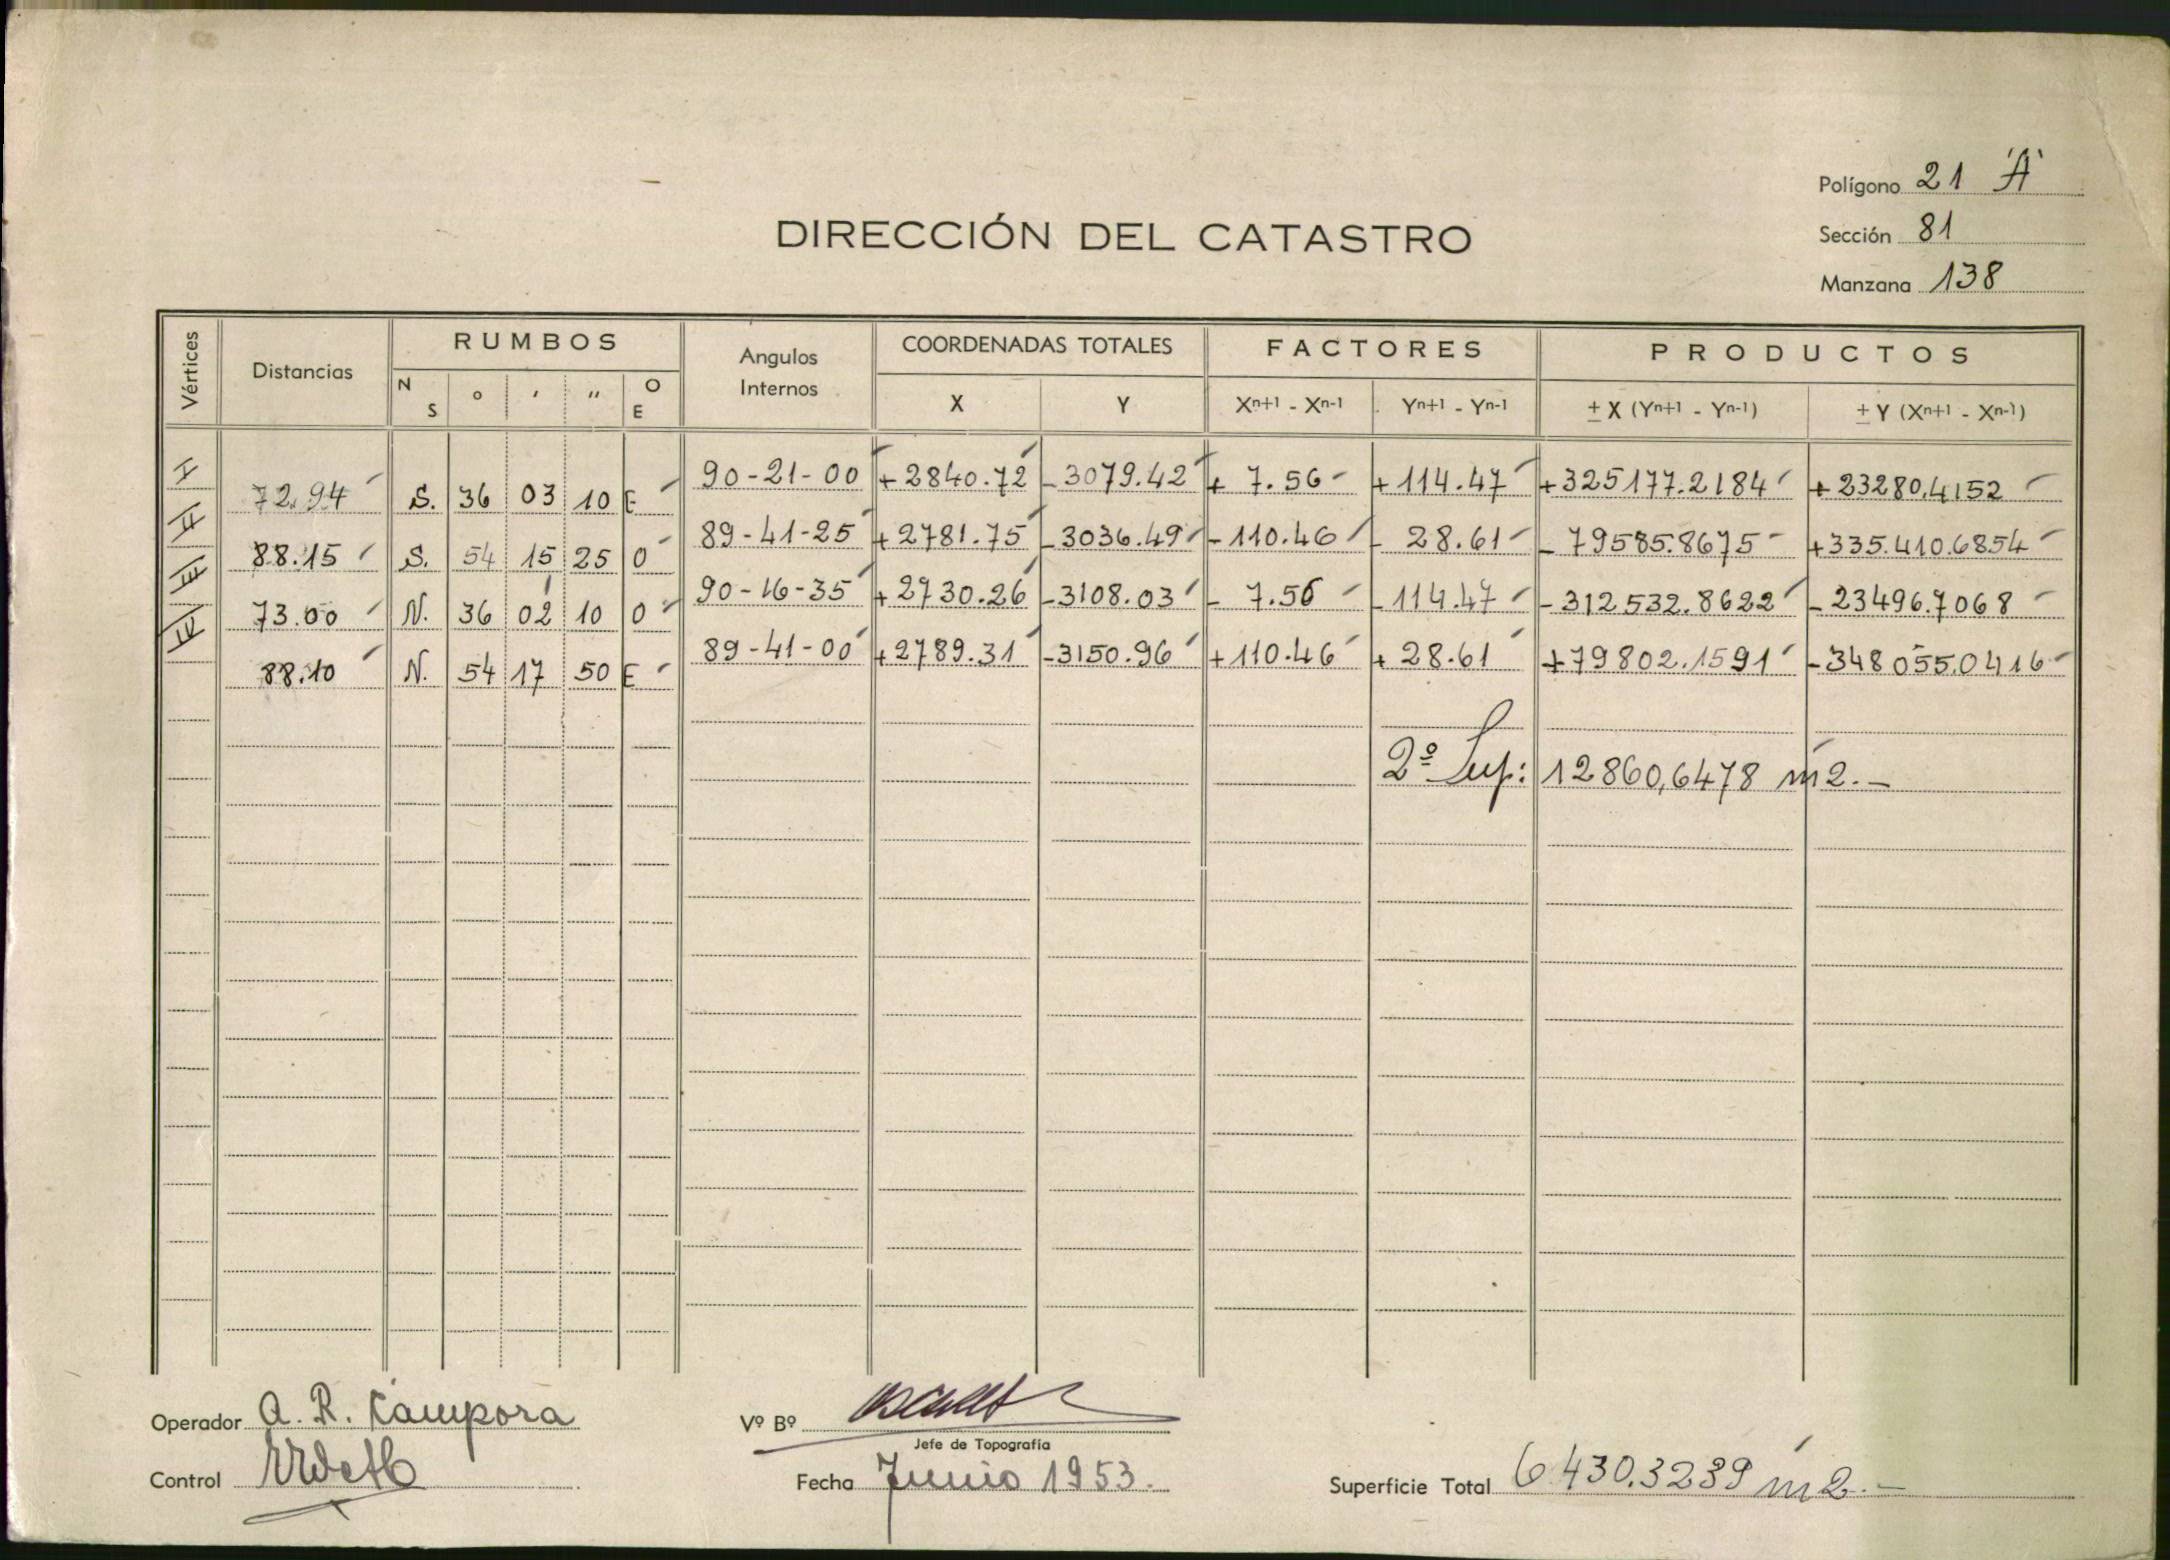 Polígono 21 "A"
DIRECCIÓN DEL CATASTRO
Sección 81
Manzana 138
Vértices Distancias RUMBOS Angulos Internos COORDENADAS TOTALES FACTORES PRODUCTOS
N S ° ' " O E X Y Xn+1 - Xn-1 Yn+1 - Yn-1 ± X (Yn+1 - Yn-1) ± Y (Xn+1 - Xn-1)
90-21-00 +2840.72 -3079.42 + 7.56 +114.47 +325177.2184 +23280,4152
72.94 S. 36 03 10 E
89-41-25 +2781.75 -3036.49 -110.46 - 28.61 - 79585.8675 +335.410.6854
88.15 S. 54 15 25 O
90-16-35 +2730.26 -3108.03 - 7.56 -114.47 -312532.8622 -23496.7068
73.00 N. 36 02 10 O
89-41-00 +2789.31 -3150.96 +110.46 + 28.61 +79802.1591 -348055.0416
88.10 N. 54 17 50 E
2º Sup: 12860,6478 m2.-
Operador A. R. Campora
Vº Bº
Jefe de Topografía
Control
Fecha Junio 1953.
Superficie Total 6430.3239 m2.-